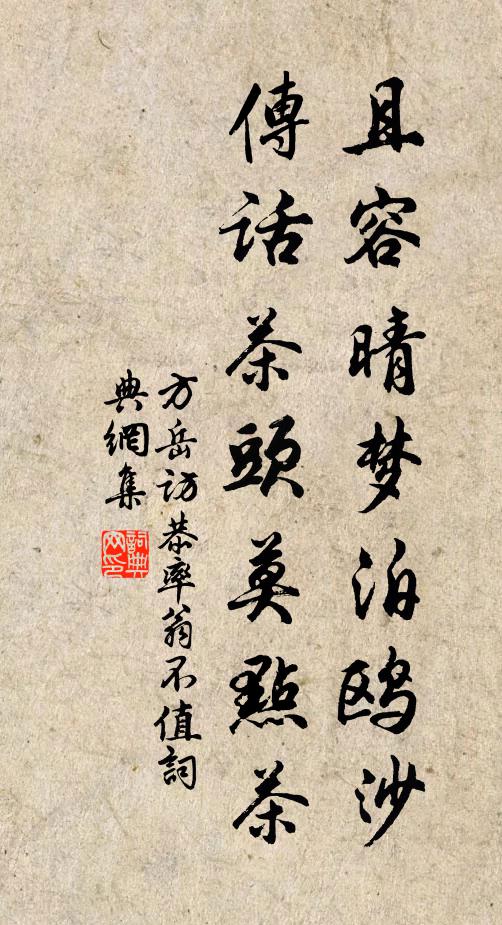 且容晴梦泊鸥沙
傳话茶頭莫點茶
方岳访恭率翁不值詞
典網集
詞典
网印